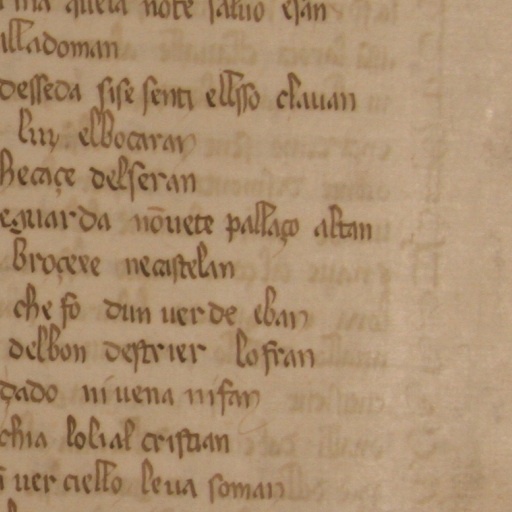 quela note saluo esan
illadoman
desseda sise senti ellsso clauan
luy elbocaran
Becaçe delseran
eguarda nōuete pallaço altan
Broçere necastelan
che fo dun uer de eban
delbon destrier lo fran
çado ni uena ni fan
chia lolial cristian
uer ciello leua soman